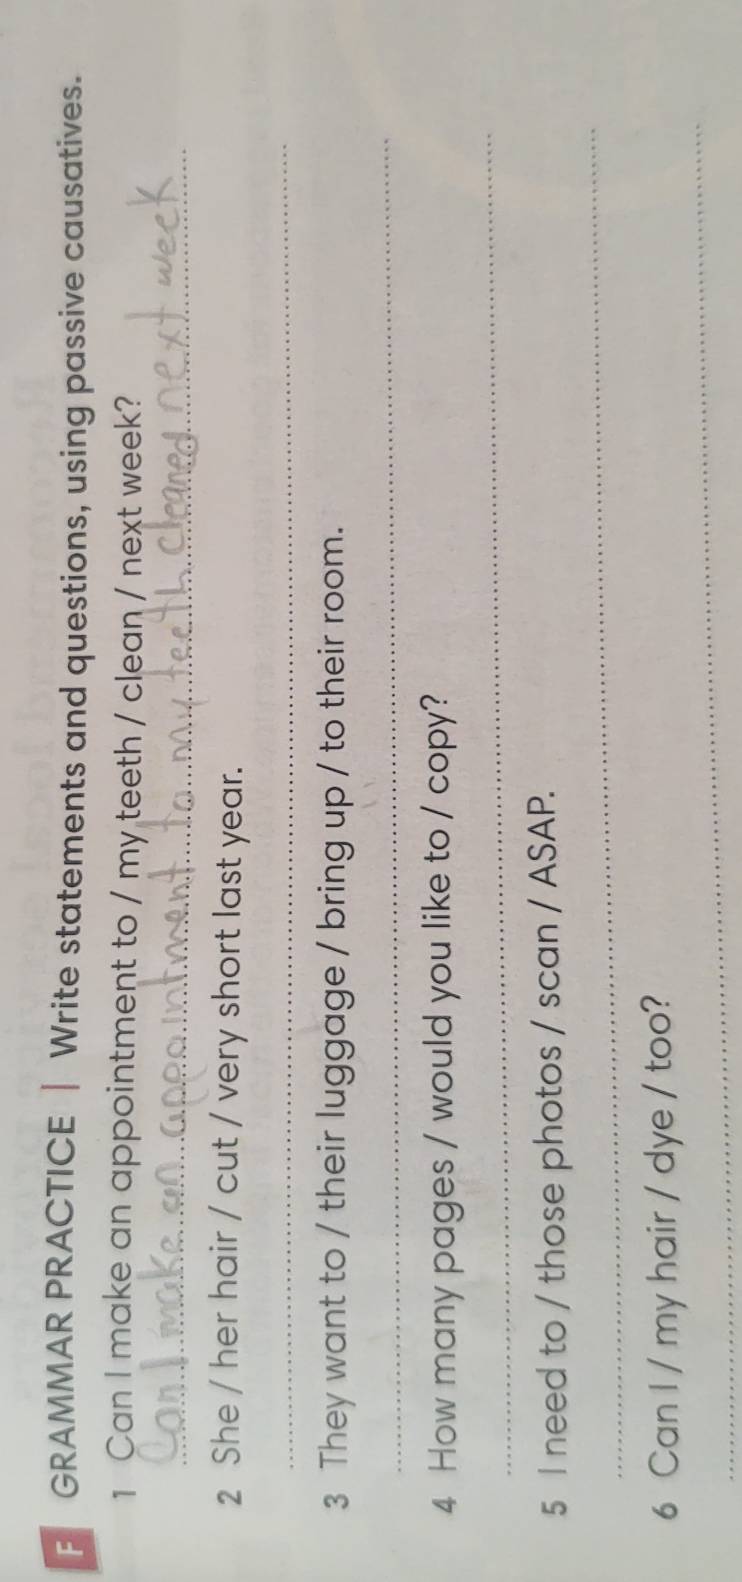 F GRAMMAR PRACTICE | Write statements and questions, using passive causatives.
1 Can I make an appointment to / my teeth / clean / next week?
Can I make an appointment to my teeth cleaned next week
2 She / her hair / cut / very short last year.
3 They want to / their luggage / bring up / to their room.
4 How many pages / would you like to / copy?
5 I need to / those photos / scan / ASAP.
6 Can I / my hair / dye / too?